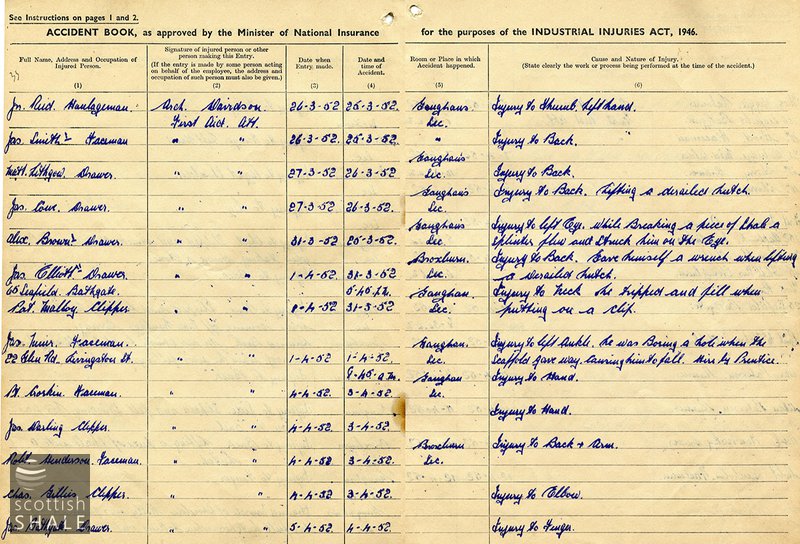 See Instructions on pages 1 and 2.
ACCIDENT BOOK, as approved by the Minister of National Insurance for the purposes of the INDUSTRIAL INJURIES ACT, 1946.
Full Name, Address and Occupation of Injured Person. (1)
Signature of injured person or other person making this Entry. (If the entry is made by some person acting on behalf of the employee, the address and occupation of such person must also be given.) (2)
Date when Entry made. (3)
Date and time of Accident. (4)
Room or Place in which Accident happened. (5)
Cause and Nature of Injury. (State clearly the work or process being performed at the time of the accident.) (6)
Jn. Reid Haulageman Arch. Davidson 26-3-52 25-3-52. Injury to Thumb. Left hand.
First Aid. Att. Sec.
Jas. Smith Faceman " " 26-3-52 25-3-52. " Injury to Back.
Matt. Lithgow Drawer " " 27-3-52 26-3-52. Sec. Injury to Back.
Injury to Back. Lifting a derailed hutch.
Jas. Drawer " " 27-3-52 26-3-52. Sec.
Injury to left Eye. While Breaking a piece of Shale a
Alex. Brown Drawer " " 31-3-52 25-3-52. Sec. Splinter flew and Struck him on the Eye.
Broxburn Injury to Back. Gave himself a wrench when lifting
Jas. Elliott Drawer " " 1-4-52 31-3-52 Sec. a derailed hutch.
65 Seafield. Bathgate. Injury to Neck He tripped and fell when
Pat. Malloy Clipper " " 31-3-52 Sec. putting on a clip.
Jas. Faceman. Injury to left Ankle. he was Boring a hole when the
22 Glen Rd. Livingston St. " " 1-4-52 1-4-52 Sec. Scaffold gave way causing him to fall.
9-45 a.m. Injury to Hand.
Faceman. " " 4-4-52 3-4-52 Sec.
Injury to Hand.
Jas. Darling Clipper. " " 4-4-52 3-4-52.
Broxburn Injury to Back + Arm.
Robt. Henderson Faceman " " 4-4-52 3-4-52. Sec.
Chas. Gillies Clipper " " 4-4-52 3-4-52. Injury to Elbow.
Jas. Bathgate Drawer " " 5-4-52 4-4-52. Injury to Finger.
Scottish
SHALE